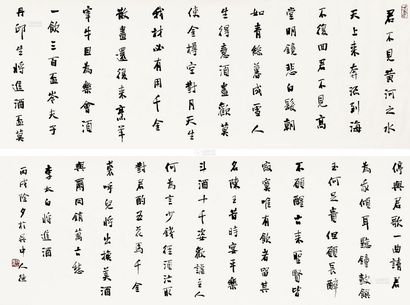 君不見黃河之水
天上來奔流到海
不復回君不見高
堂明鏡悲白髮朝
如青絲暮成雪人
生得意須盡歡莫
使金樽空對月天生
我材必有用千金
散盡還復來烹羊
宰牛且為樂會須
一飲三百盃岑夫子
丹邱生將進酒盃莫
停君歌一曲請君
為我傾耳聽鐘鼓饌
玉何足貴但願長醉
不願醒古來聖賢皆
寂寞唯有飲者留其
名陳王昔時宴平樂
斗酒十千恣歡謔主人
何為言少錢徑須沽取
對君酌五花馬千金
裘呼兒將出換美酒
與爾同銷萬古愁
李太白將進酒
丙戌除夕於吳中人德